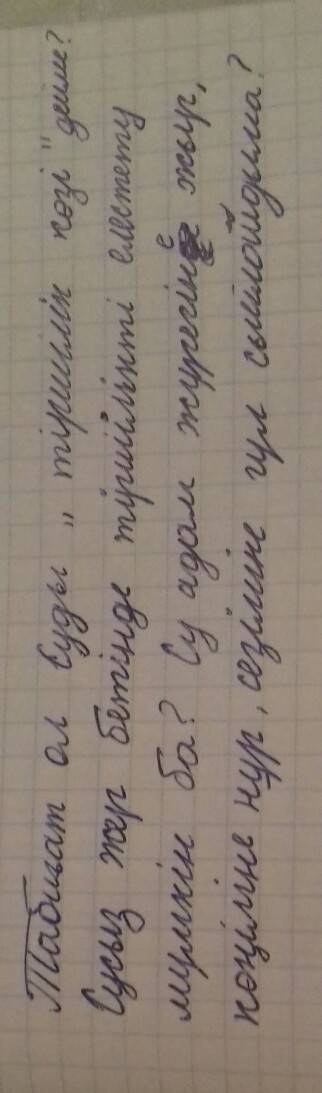 Табиғат ол Суды „ тіршілік көзі" дейме?
Сусыз жер бетінде тіршілікті елестету
мүмкін ба? Су адам жүрегіне жыр,
көңіліне нұр, сезіміне гүл сыйлайдыма?